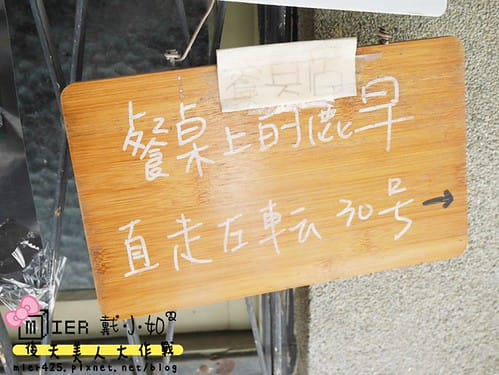 餐具店
餐桌上的鹿早
直走左転 30号 →
MIER 戴.小.如
美人大作戰
mier425.pixnet.net/blog